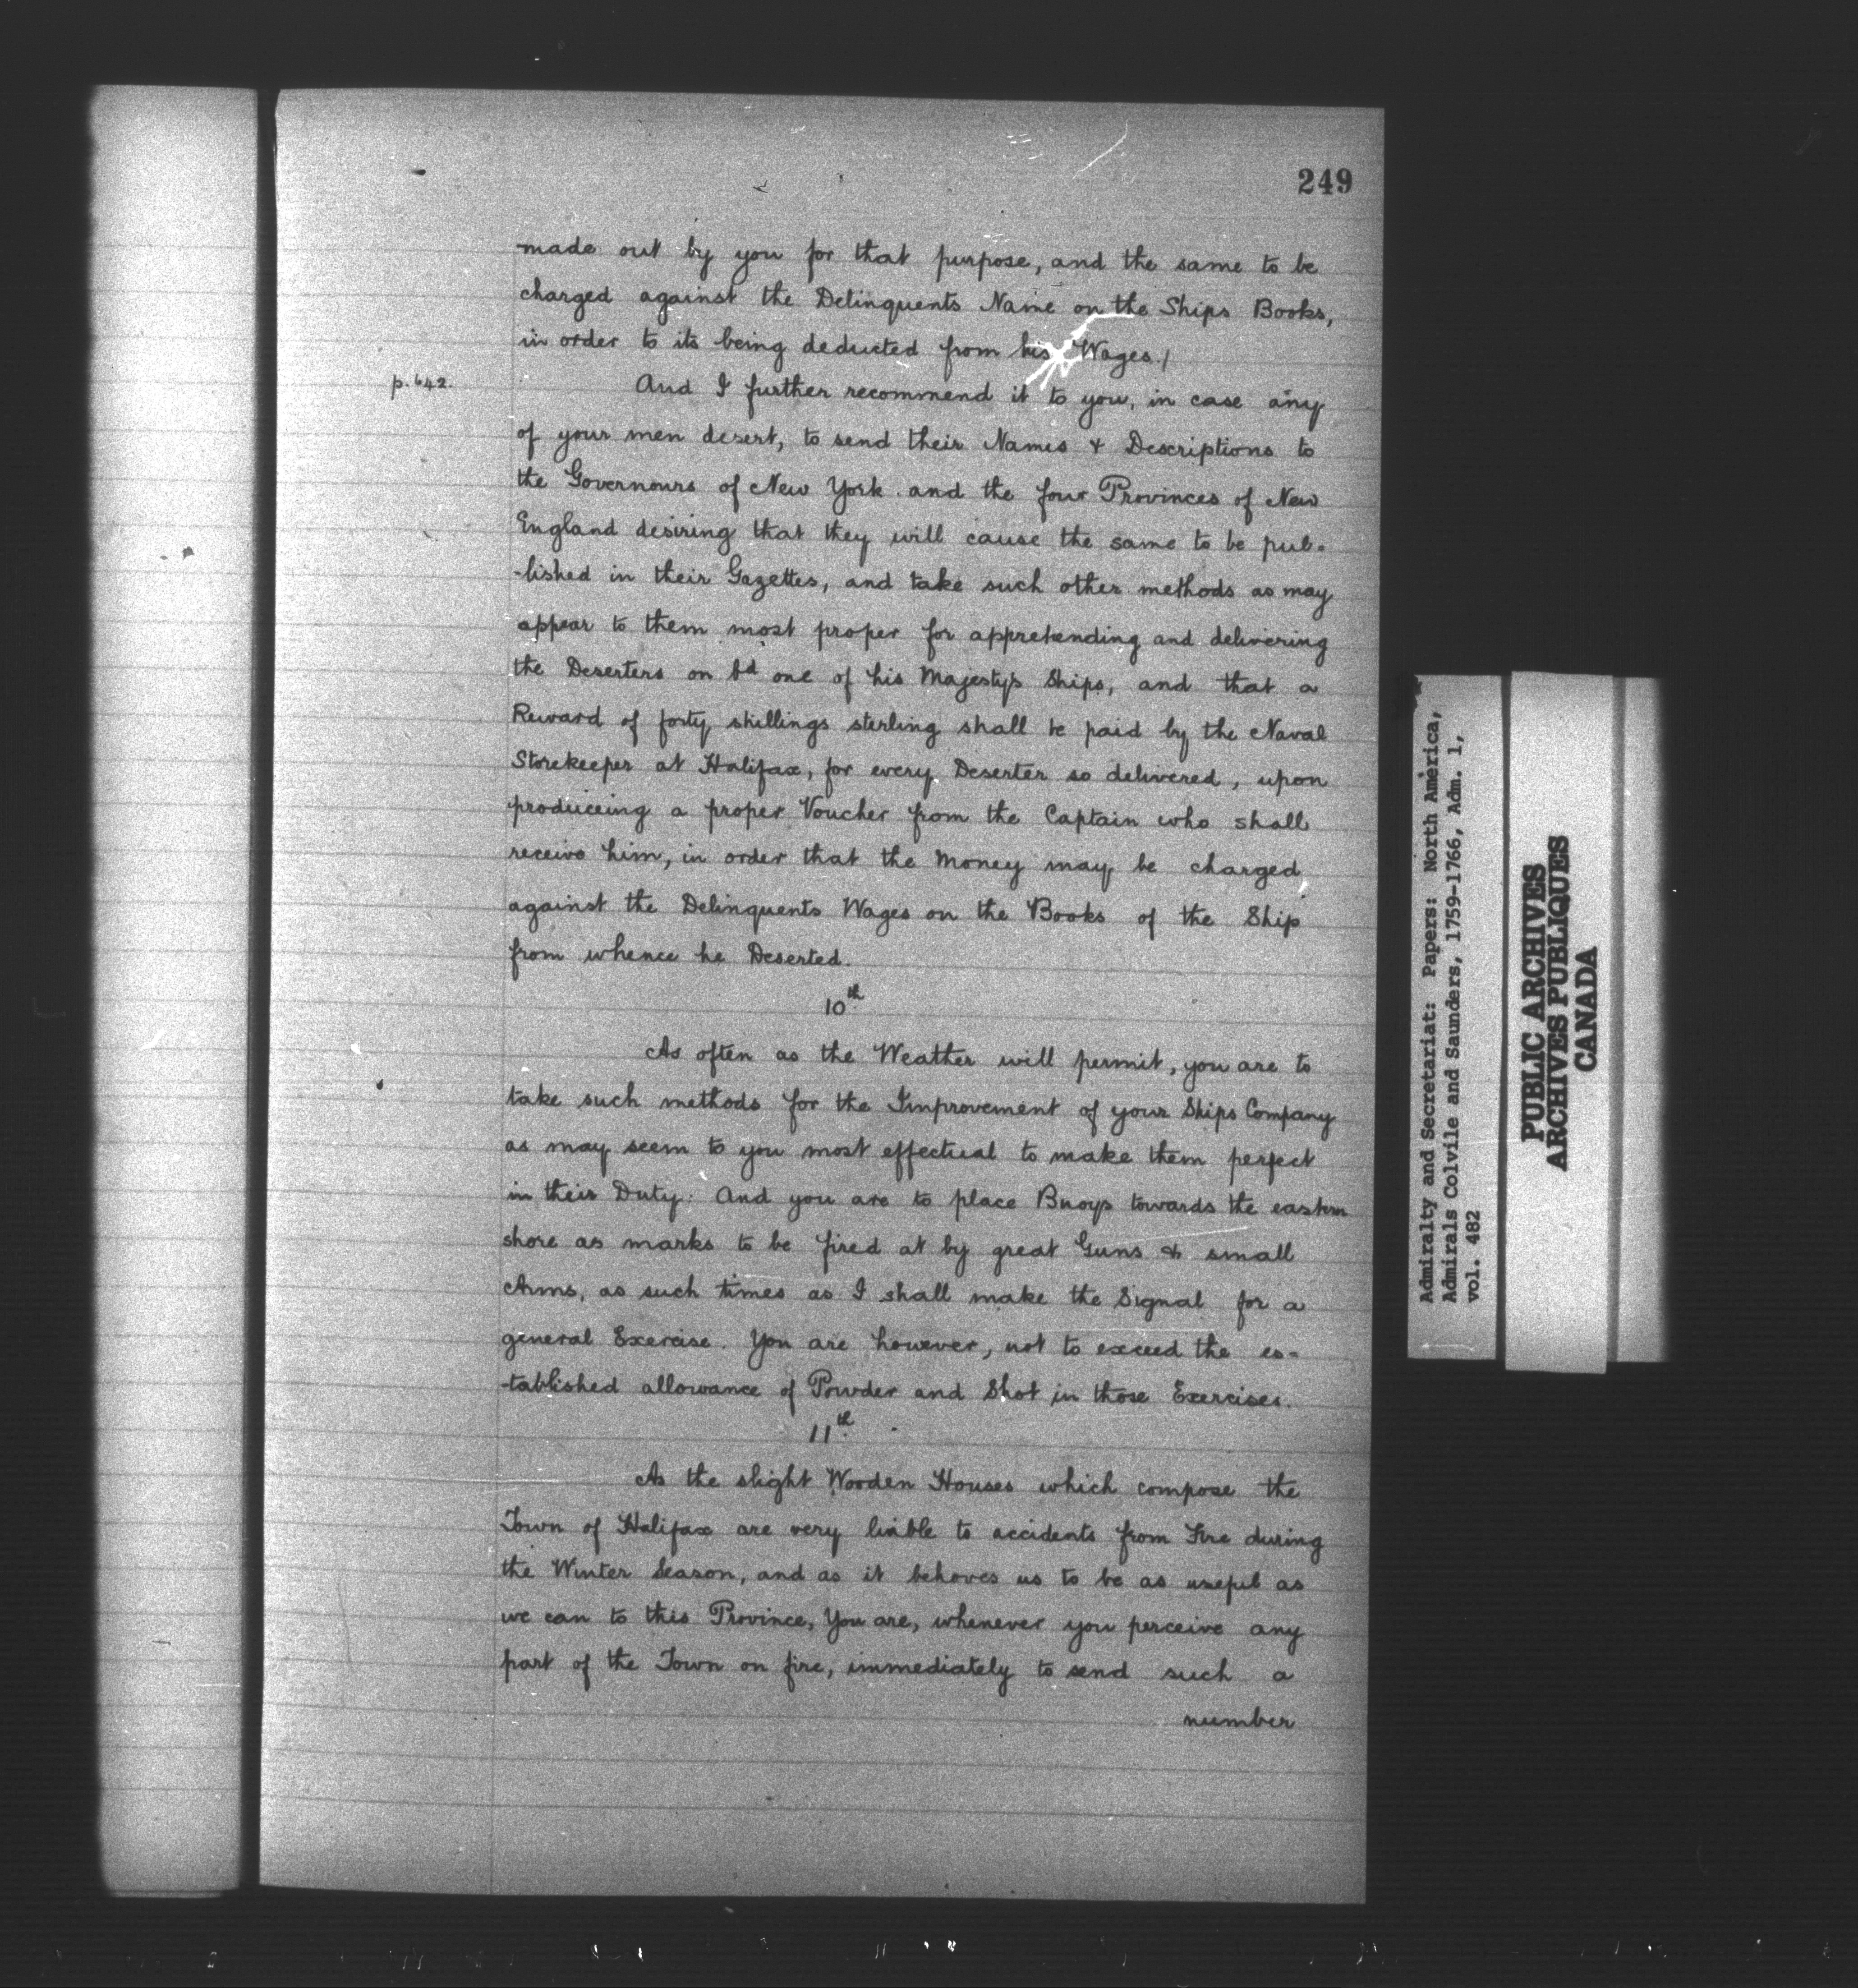 249
made out by you for that purpose, and the same to be
charged against the Delinquents Name on the Ships Books,
in order to its being deducted from his Wages./
p. 642.
And I further recommend it to you, in case any
of your men desert, to send their Names & Descriptions to
the Governours of New York and the four Provinces of New
England desiring that they will cause the same to be pub-
-lished in their Gazettes, and take such other methods as may
appear to them most proper for apprehending and delivering
the Deserters on bd one of his Majesty's Ships, and that a
Reward of forty shillings sterling shall be paid by the Naval
Storekeeper at Halifax, for every Deserter so delivered, upon
produceing a proper Voucher from the Captain who shall
receive him, in order that the Money may be charged
against the Delinquents Wages on the Books of the Ship
from whence he Deserted.
10th
As often as the Weather will permit, you are to
take such methods for the Improvement of your Ships Company
as may seem to you most effectual to make them perfect
in their Duty: And you are to place Buoys towards the eastern
shore as marks to be fired at by great Guns & small
Arms, as such times as I shall make the Signal for a
general Exercise. You are however, not to exceed the es-
-tablished allowance of Powder and Shot in those Exercises.
11th
As the slight Wooden Houses which compose the
Town of Halifax are very liable to accidents from Fire during
the Winter Season, and as it behoves us to be as useful as
we can to this Province, You are, whenever you perceive any
part of the Town on fire, immediately to send such a
number
Admiralty and Secretariat: Papers: North America,
Admirals Colvile and Saunders, 1759-1766, Adm. 1,
vol. 482
PUBLIC ARCHIVES
ARCHIVES PUBLIQUES
CANADA